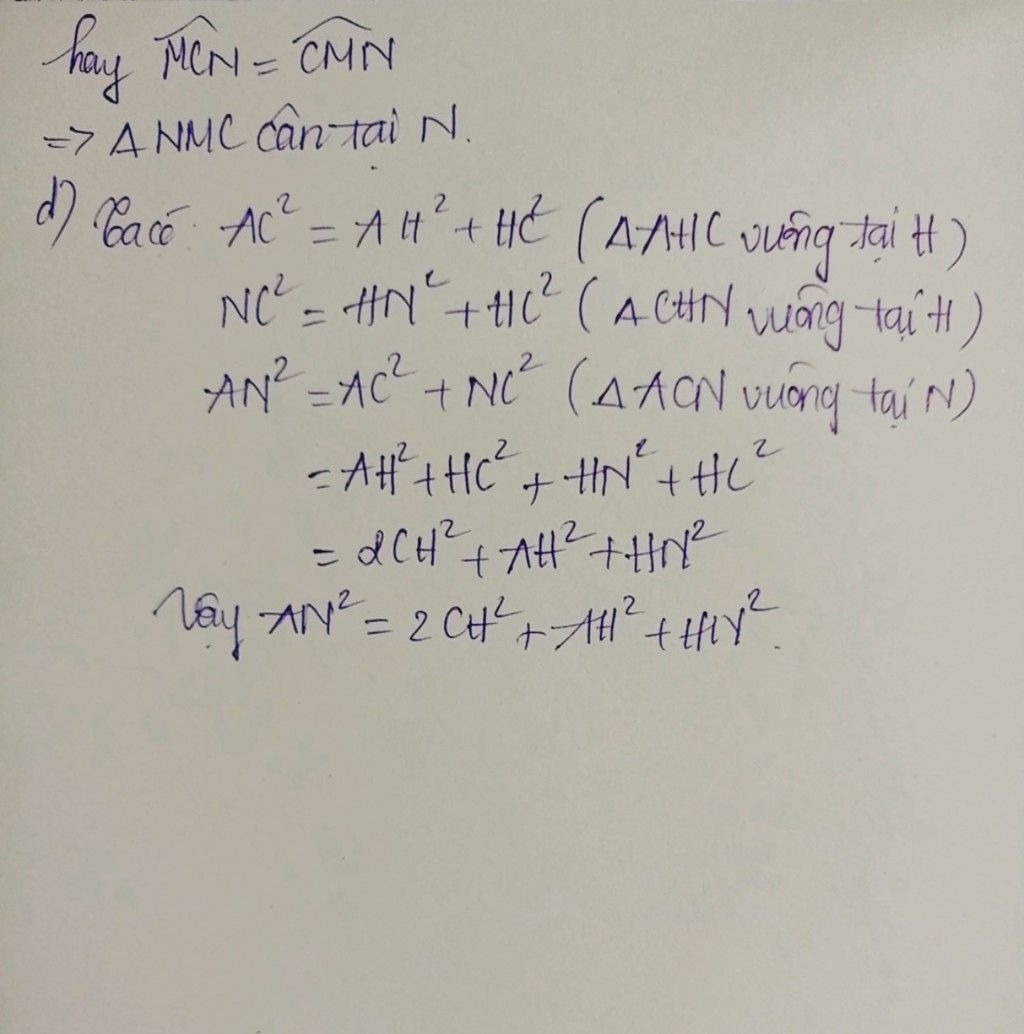 hay MCN = CMN
=> Δ NMC cân tại N.
d) Ta có: AC² = AH² + HC² (ΔAHC vuông tại H)
NC² = HN² + HC² (ΔCHN vuông tại H)
AN² = AC² + NC² (ΔACN vuông tại N)
= AH² + HC² + HN² + HC²
= 2CH² + AH² + HN²
Vậy AN² = 2CH² + AH² + HN².